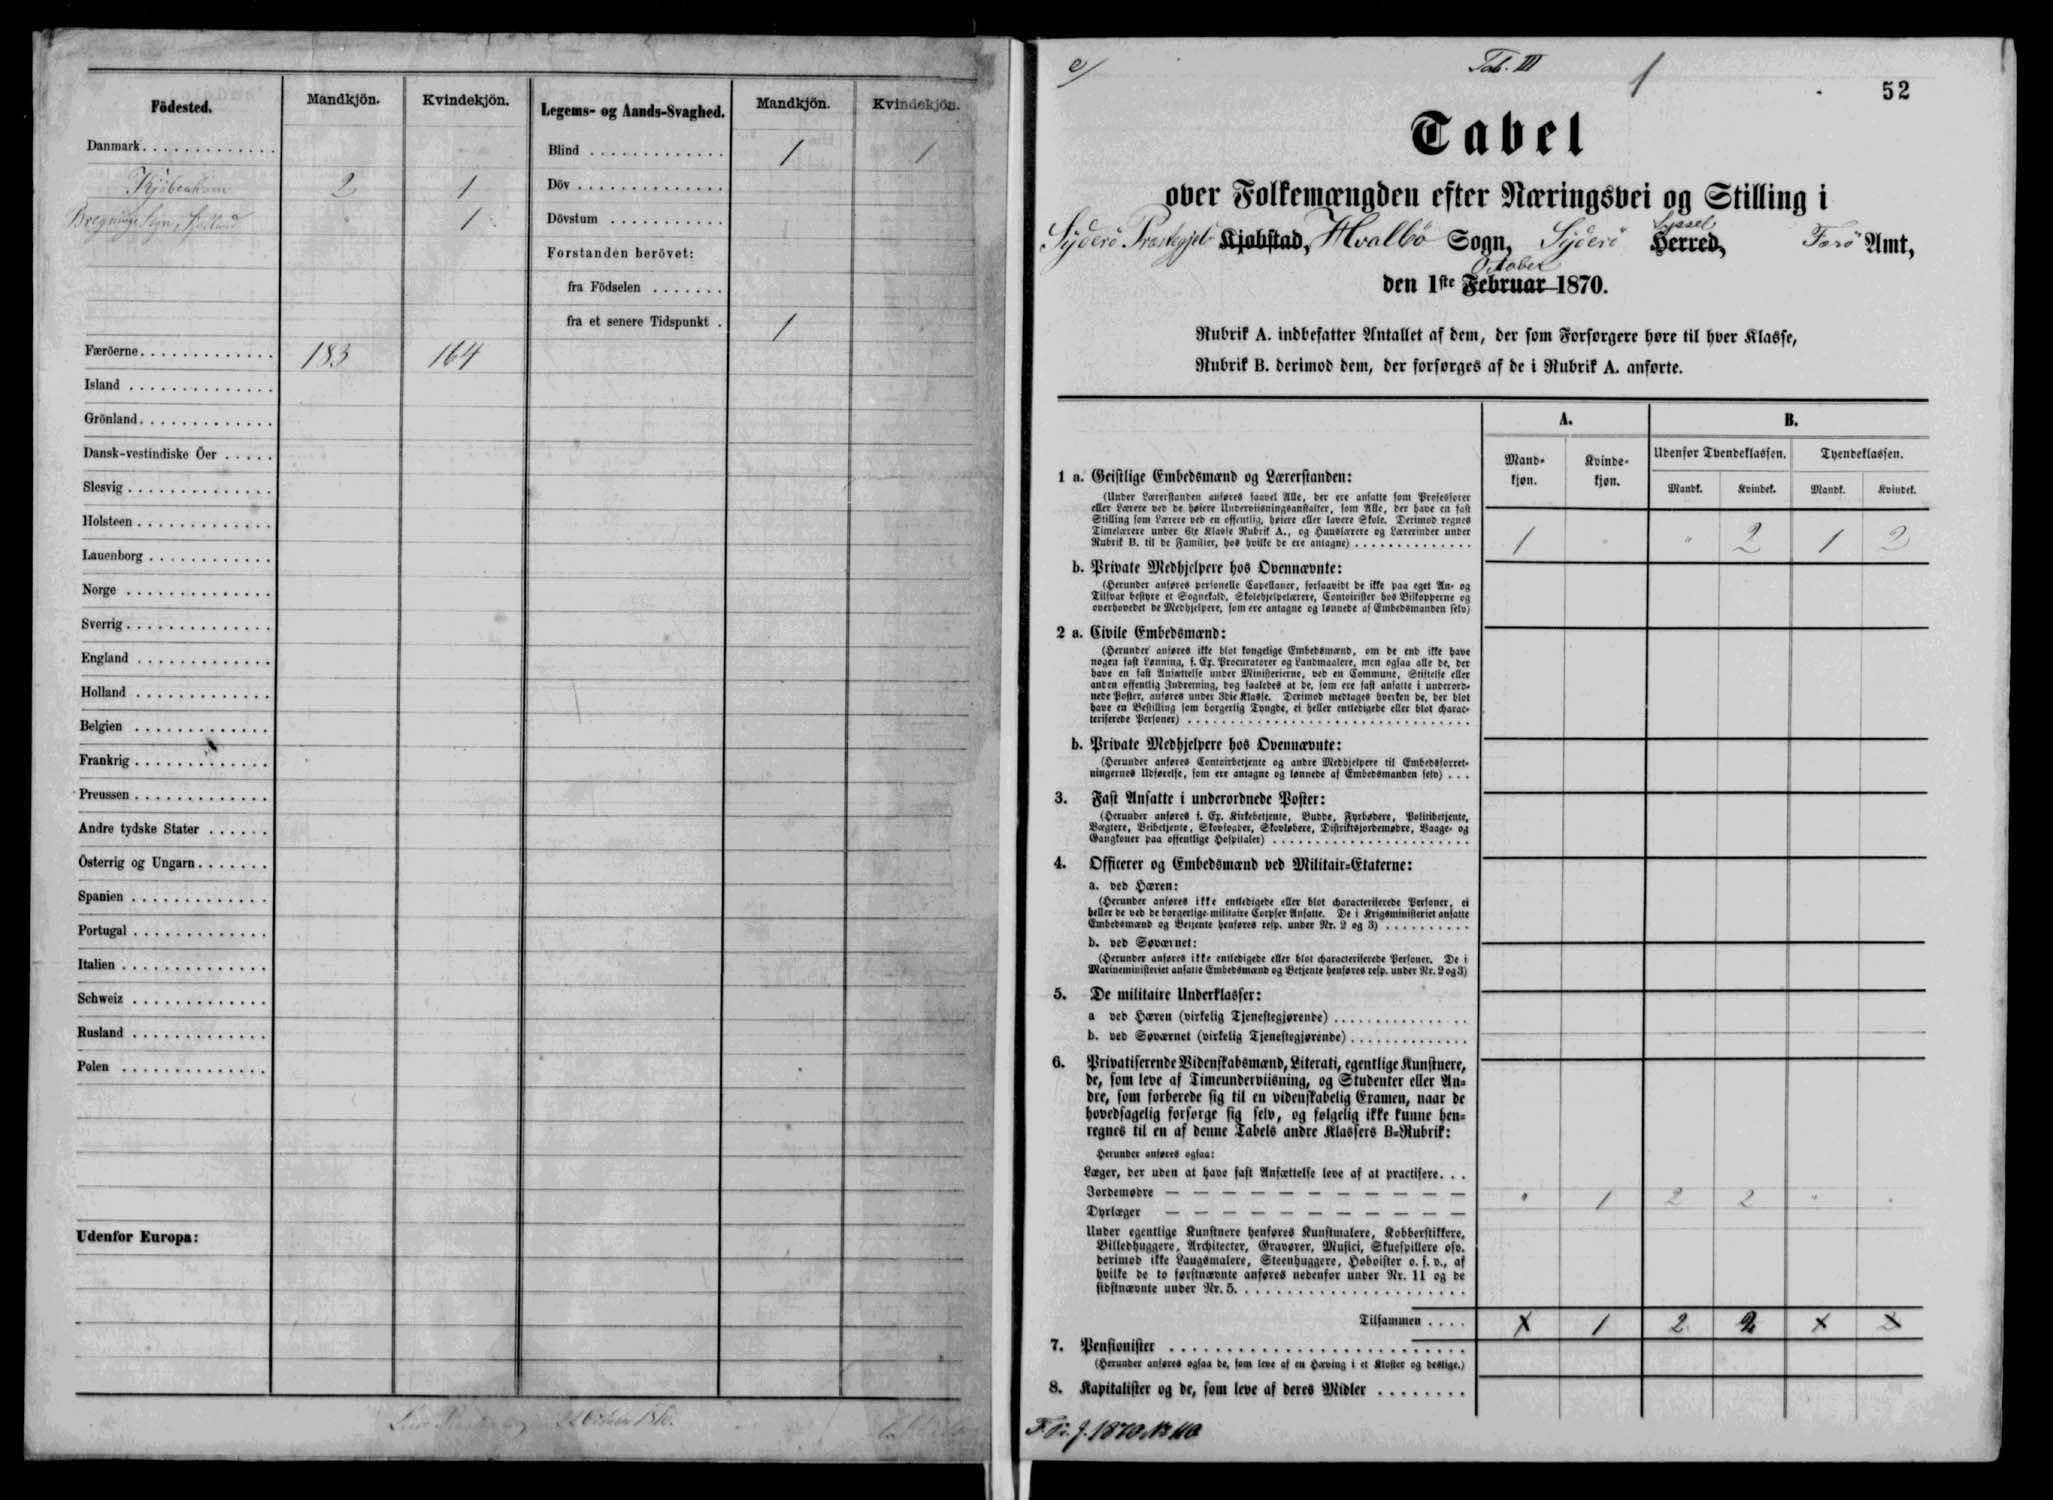 Födested. Mandkjön. Kvindekjön. Legems- og Aands-Svaghed. Mandkjön. Kvindekjön.
Danmark . . . . . . . . . . . . . Blind . . . . . . . . . . . . . 1 1
Kjöbenhavn 2 1 Döv . . . . . . . . . . . . . .
Bregninge Sogn, 1 Dövstum . . . . . . . . . . .
Forstanden berövet:
fra Födselen . . . . . . .
fra et senere Tidspunkt . 1
Færöerne . . . . . . . . . . . . . 183 164
Island . . . . . . . . . . . . . .
Grönland . . . . . . . . . . . . .
Dansk-vestindiske Öer . . . . .
Slesvig . . . . . . . . . . . . . .
Holsteen . . . . . . . . . . . . .
Lauenborg . . . . . . . . . . . .
Norge . . . . . . . . . . . . . .
Sverrig . . . . . . . . . . . . . .
England . . . . . . . . . . . . .
Holland . . . . . . . . . . . . .
Belgien . . . . . . . . . . . . .
Frankrig . . . . . . . . . . . . .
Preussen . . . . . . . . . . . . .
Andre tydske Stater . . . . . .
Österrig og Ungarn . . . . . . .
Spanien . . . . . . . . . . . . .
Portugal . . . . . . . . . . . . .
Italien . . . . . . . . . . . . . .
Schweiz . . . . . . . . . . . . .
Rusland . . . . . . . . . . . . .
Polen . . . . . . . . . . . . . .
Udenfor Europa:
e/ Tab. III 1
52
Tabel
over Folkemængden efter Næringsvei og Stilling i
Syderö Præstegjeld Kjøbstad, Hvalbö Sogn, Syderö Herred, Syssel Færö Amt,
den 1ste Februar October 1870.
Rubrik A. indbefatter Antallet af dem, der som Forsørgere høre til hver Klasse,
Rubrik B. derimod dem, der forsørges af de i Rubrik A. anførte.
A. B.
Mand-kjøn. Kvinde-kjøn. Udenfor Tyendeklassen. Tyendeklassen.
Mandk. Kvindek. Mandk. Kvindek.
1 a. Geistlige Embedsmænd og Lærerstanden:
(Under Lærerstanden anføres saavel Alle, der ere ansatte som Professorer
eller Lærere ved de høiere Underviisningsanstalter, som Alle, der have en fast
Stilling som Lærere ved en offentlig, høiere eller lavere Skole. Derimod regnes
Timelærere under 6te Klasse Rubrik A., og Huuslærere og Lærerinder under
Rubrik B. til de Familier, hos hvilke de ere antagne) . . . . . . . . . . . . . . 1 " " 2 1 2
b. Private Medhjelpere hos Ovennævnte:
(Herunder anføres personelle Capellaner, forsaavidt de ikke paa eget An- og
Tilsvar bestyre et Sognekald, Skolehjelpelærere, Contoirister hos Biskopperne og
overhovedet de Medhjelpere, som ere antagne og lønnede af Embedsmanden selv)
2 a. Civile Embedsmænd:
(Herunder anføres ikke blot kongelige Embedsmænd, om de end ikke have
nogen fast Lønning, f. Ex. Procuratorer og Landmaalere, men ogsaa alle de, der
have en fast Ansættelse under Ministerierne, ved en Commune, Stiftelse eller
anden offentlig Indretning, dog saaledes at de, som ere fast ansatte i underord-
nede Poster, anføres under 3die Klasse. Derimod medtages hverken de, der blot
have en Bestilling som borgerlig Tyngde, ei heller entledigede eller blot charac-
teriserede Personer) . . . . . . . . . . . . . . . . . . . . . . . . . . . . .
b. Private Medhjelpere hos Ovennævnte:
(Herunder anføres Contoirbetjente og andre Medhjelpere til Embedsforret-
ningernes Udførelse, som ere antagne og lønnede af Embedsmanden selv) . . .
3. Fast Ansatte i underordnede Poster:
(Herunder anføres f. Ex. Kirkebetjente, Budde, Fyrbødere, Politibetjente,
Vægtere, Veibetjente, Skovfogder, Skovløbere, Distriktsjordemødre, Vaage- og
Gangkoner paa offentlige Hospitaler) . . . . . . . . . . . . . . . . . . . . .
4. Officerer og Embedsmænd ved Militair-Etaterne:
a. ved Hæren:
(Herunder anføres ikke entledigede eller blot characteriserede Personer, ei
heller de ved de borgerlige militaire Corpser Ansatte. De i Krigsministeriet ansatte
Embedsmænd og Betjente henføres resp. under Nr. 2 og 3) . . . . . . . . . .
b. ved Søværnet:
(Herunder anføres ikke entledigede eller blot characteriserede Personer. De i
Marineministeriet ansatte Embedsmænd og Betjente henføres resp. under Nr. 2 og 3)
5. De militaire Underklasser:
a ved Hæren (virkelig Tjenestegjørende) . . . . . . . . . . . . . . .
b. ved Søværnet (virkelig Tjenestegjørende) . . . . . . . . . . . . .
6. Privatiserende Videnskabsmænd, Literati, egentlige Kunstnere,
de, som leve af Timeunderviisning, og Studenter eller An-
dre, som forberede sig til en videnskabelig Examen, naar de
hovedsagelig forsørge sig selv, og følgelig ikke kunne hen-
regnes til en af denne Tabels andre Klassers B-Rubrik:
Herunder anføres ogsaa:
Læger, der uden at have fast Ansættelse leve af at practisere. . .
Jordemødre — — — — — — — — — " 1 2 2 " "
Dyrlæger — — — — — — — — —
Under egentlige Kunstnere henføres Kunstmalere, Kobberstikkere,
Billedhuggere, Architecter, Gravører, Musici, Skuespillere osv.
derimod ikke Laugsmalere, Steenhuggere, Hoboister o. s. v., af
hvilke de to førstnævnte anføres nedenfor under Nr. 11 og de
sidstnævnte under Nr. 5. . . . . . . . . . . . . . . . . . . . . .
Tilsammen . . . . 1 1 2 2 1 2
7. Pensionister . . . . . . . . . . . . . . . . . . . . . . . . .
(Herunder anføres ogsaa de, som leve af en Hæving i et Kloster og deslige.)
8. Kapitalister og de, som leve af deres Midler . . . . . . . .